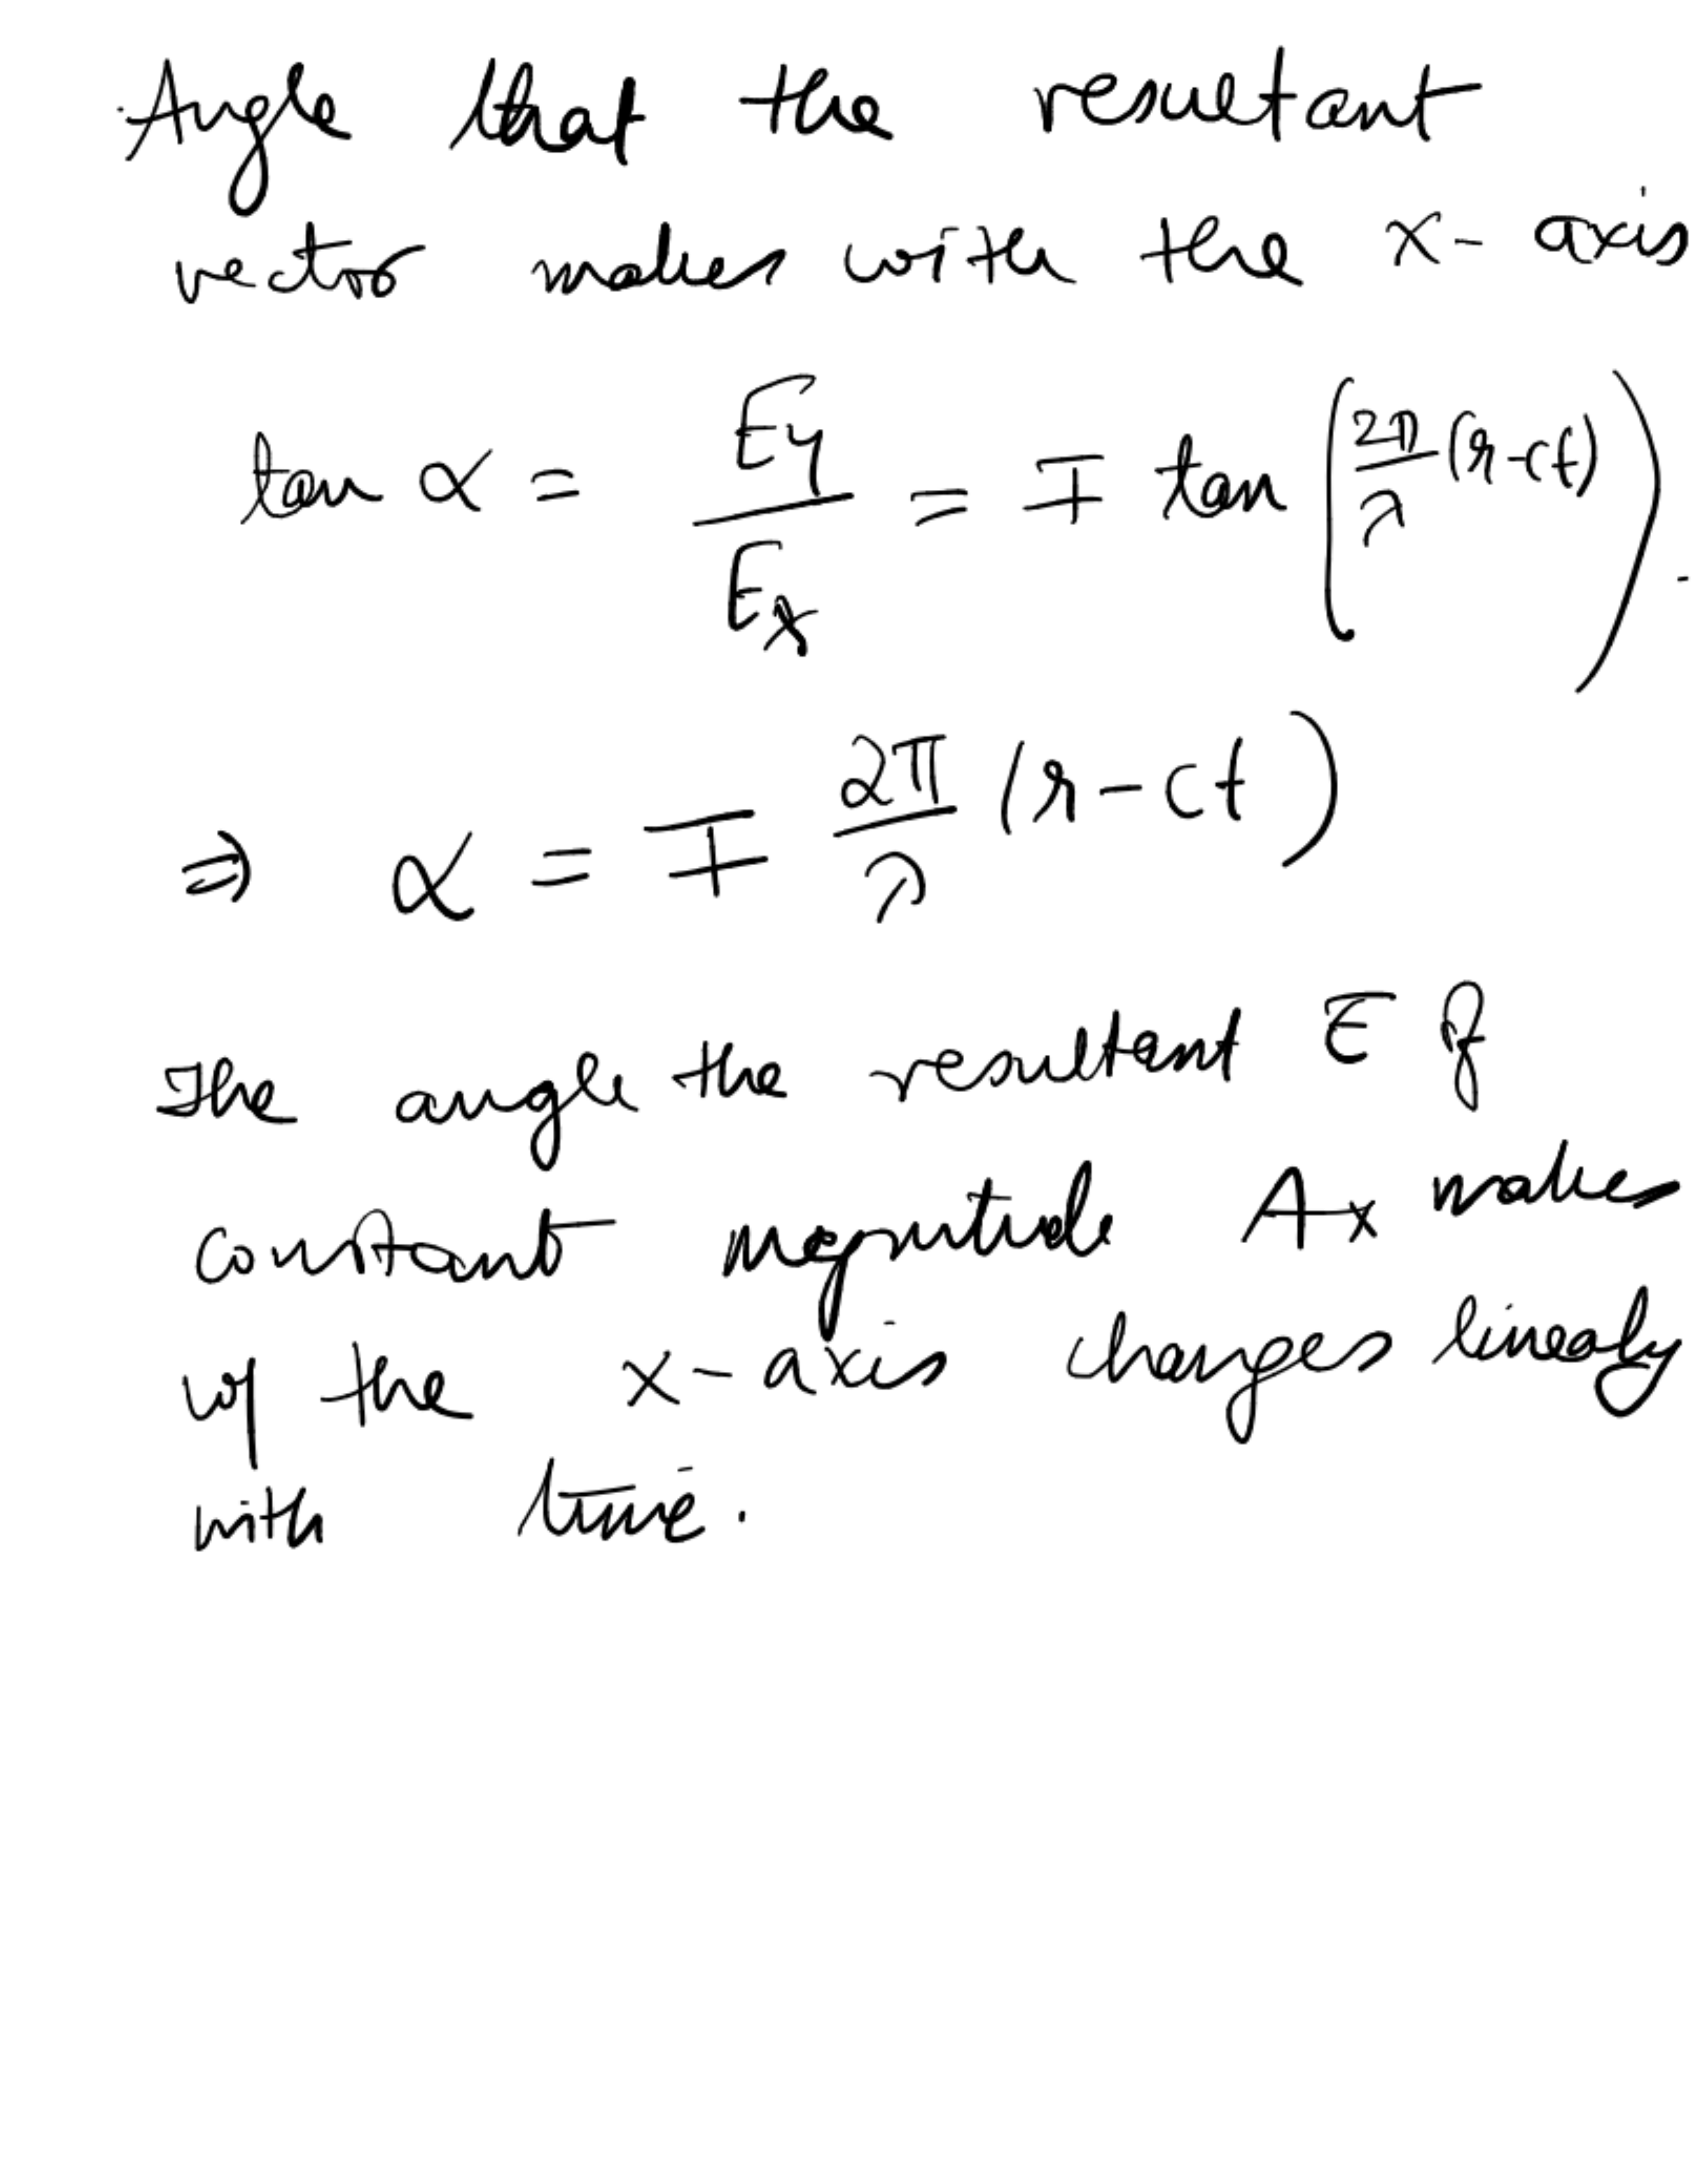 Angle that the resultant
vector makes with the x- axis
tan α = Ey / Ex = ∓ tan (2π/λ (r-ct)).
⇒ α = ∓ 2π/λ (r-ct)
The angle the resultant E of
constant magnitude Ax makes
w/ the x-axis changes linealy
with time.